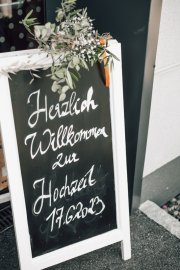 Herzlich
Willkommen
zur
Hochzeit
17.6.2023